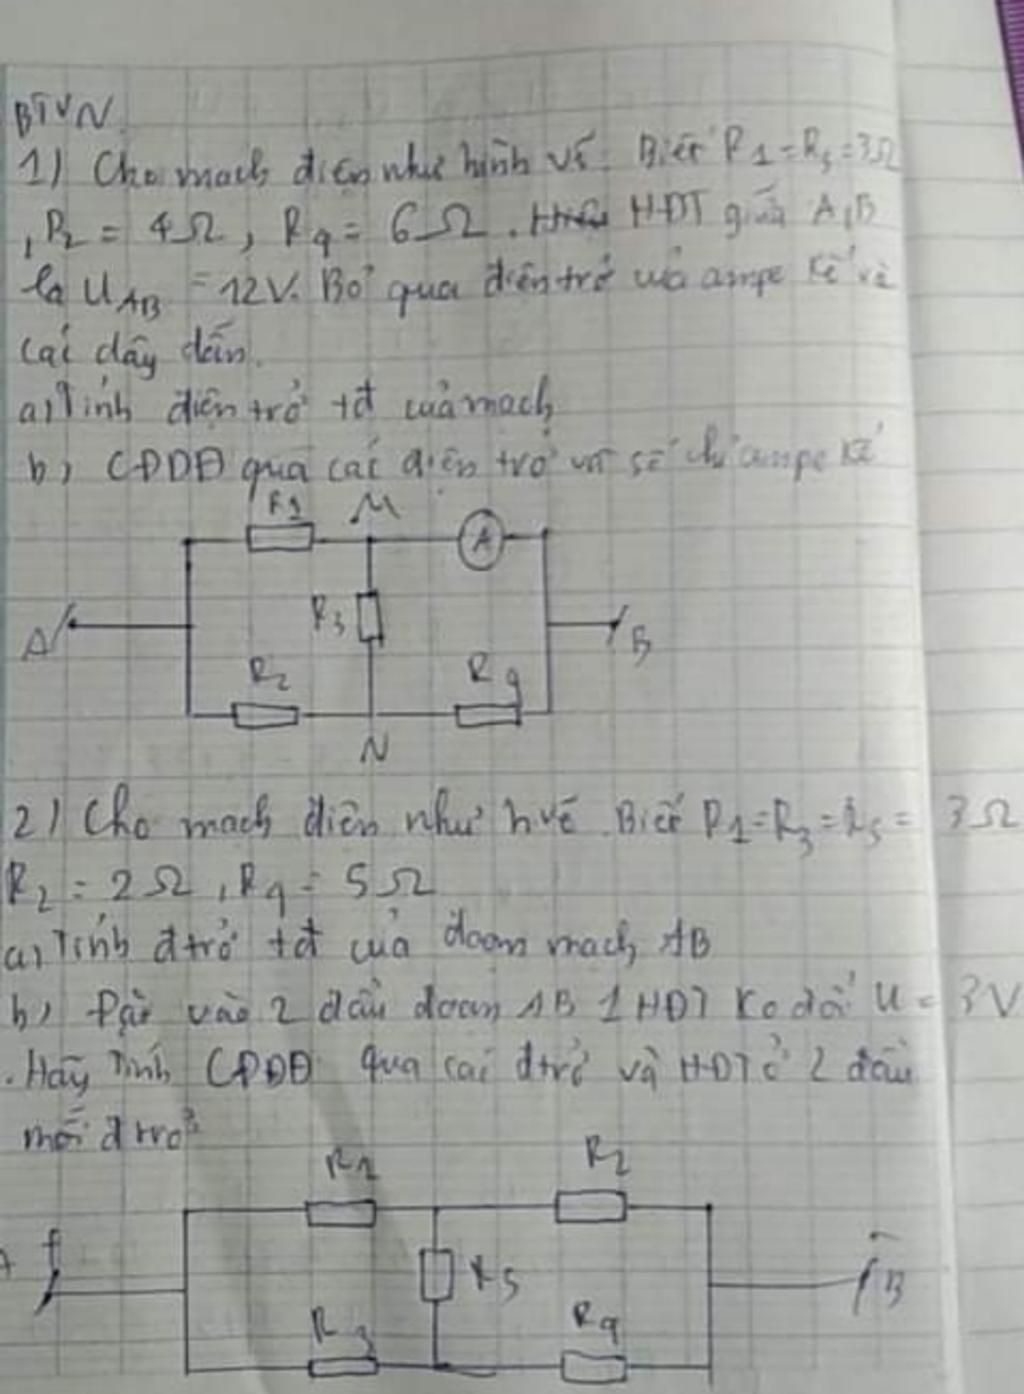 BTVN
1) Cho mạch điện như hình vẽ. Biết R1 = R3 = 3Ω
, R2 = 4Ω, R4 = 6Ω. HĐT giữa A,B
là UAB = 12V. Bỏ qua điện trở của ampe kế và
các dây dẫn.
a) Tính điện trở tđ của mạch
b) CĐDĐ qua các điện trở và số chỉ ampe kế
R1 M
A
R3
A B
R2 R4
N
2) Cho mạch điện như h.vẽ. Biết R1 = R3 = R5 = 3Ω
R2 = 2Ω, R4 = 5Ω
a) Tính đtrở tđ của đoạn mạch AB
b) Đặt vào 2 đầu đoạn AB 1 HĐT ko đổi U = 3V
. Hãy tính CĐDĐ qua các đtrở và HĐT ở 2 đầu
mỗi đtrở
R1 R2
+ -
R5 B
R3 R4